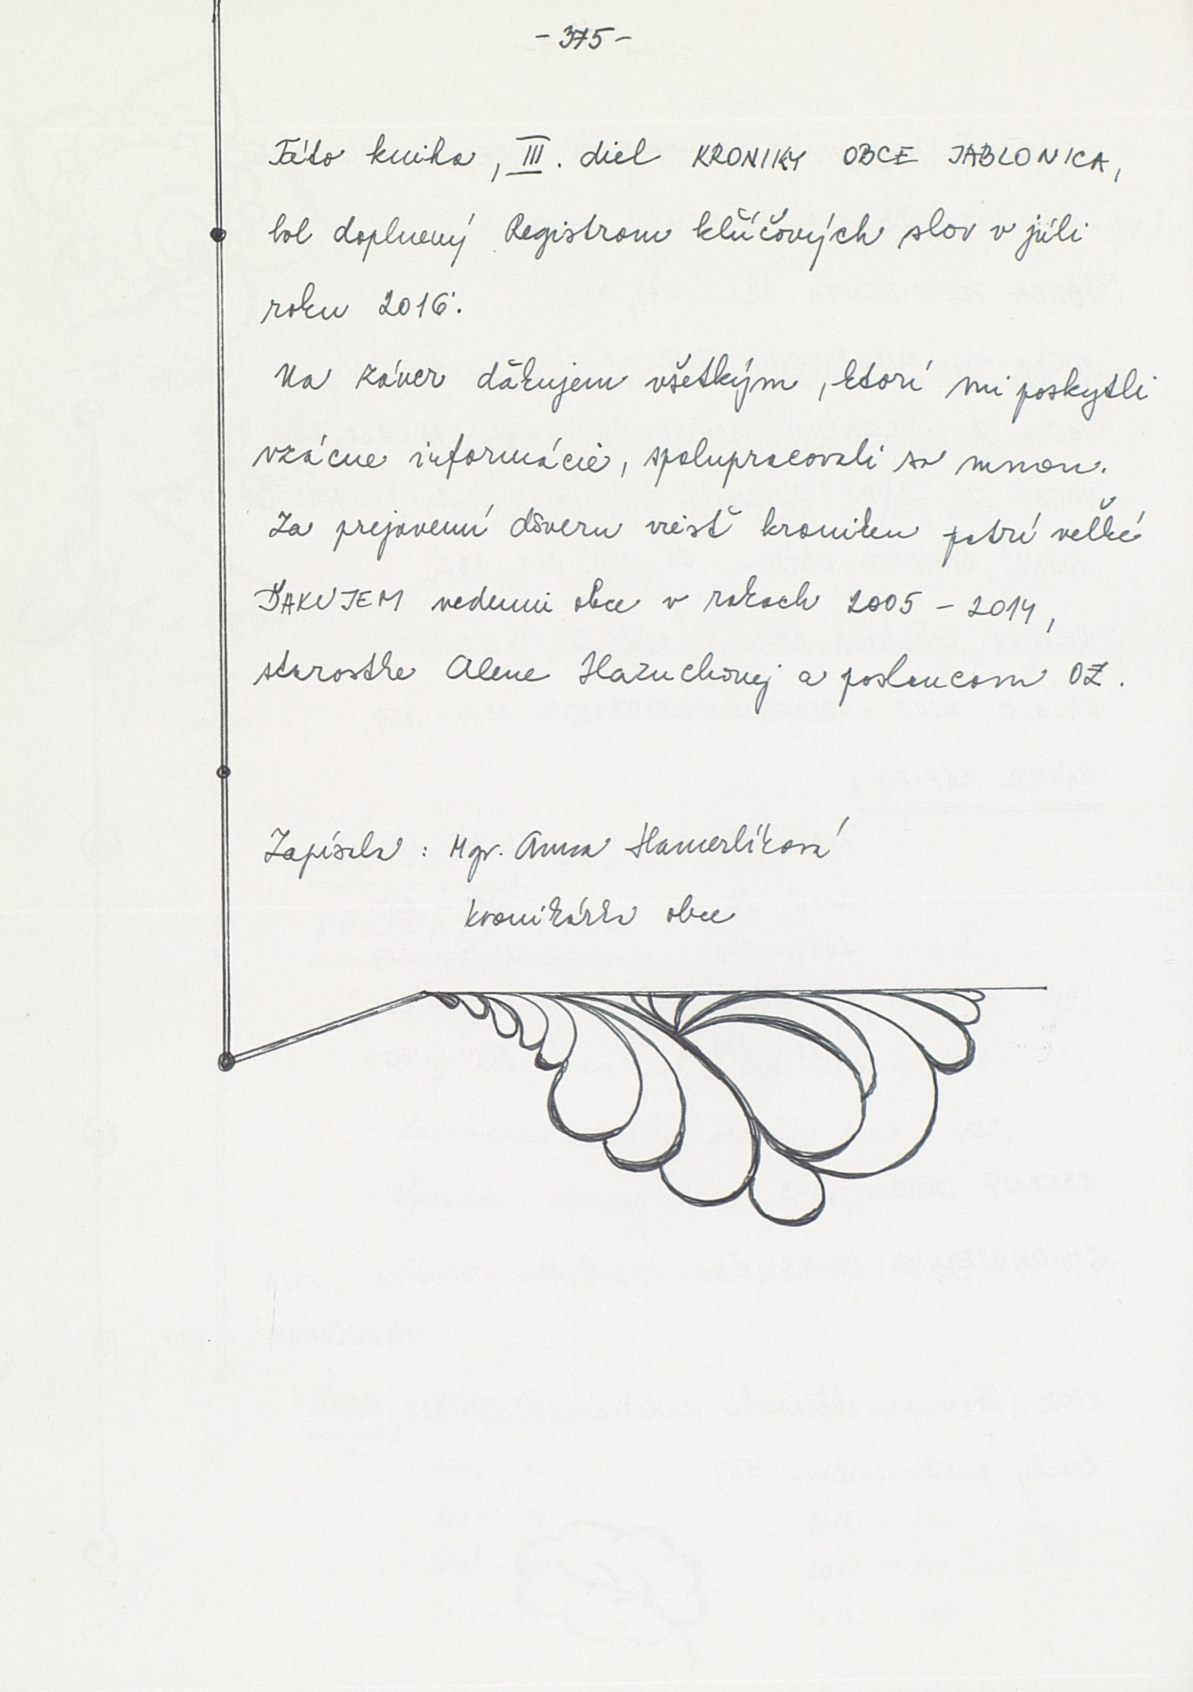 - 375 -
Táto kniha, III. diel KRONIKY OBCE JABLONICA,
bol doplnený Registrom kľúčových slov v júli
roku 2016.
Na záver ďakujem všetkým, ktorí mi poskytli
vzácne informácie, spolupracovali so mnou.
Za prejavenú dôveru viesť kroniku patrí veľké
ĎAKUJEM vedeniu obce v rokoch 2005 - 2014,
starostke Alene Hazuchovej a poslancom OZ.
Zapísala : Mgr. Anna Hamerlíková
kronikárka obce